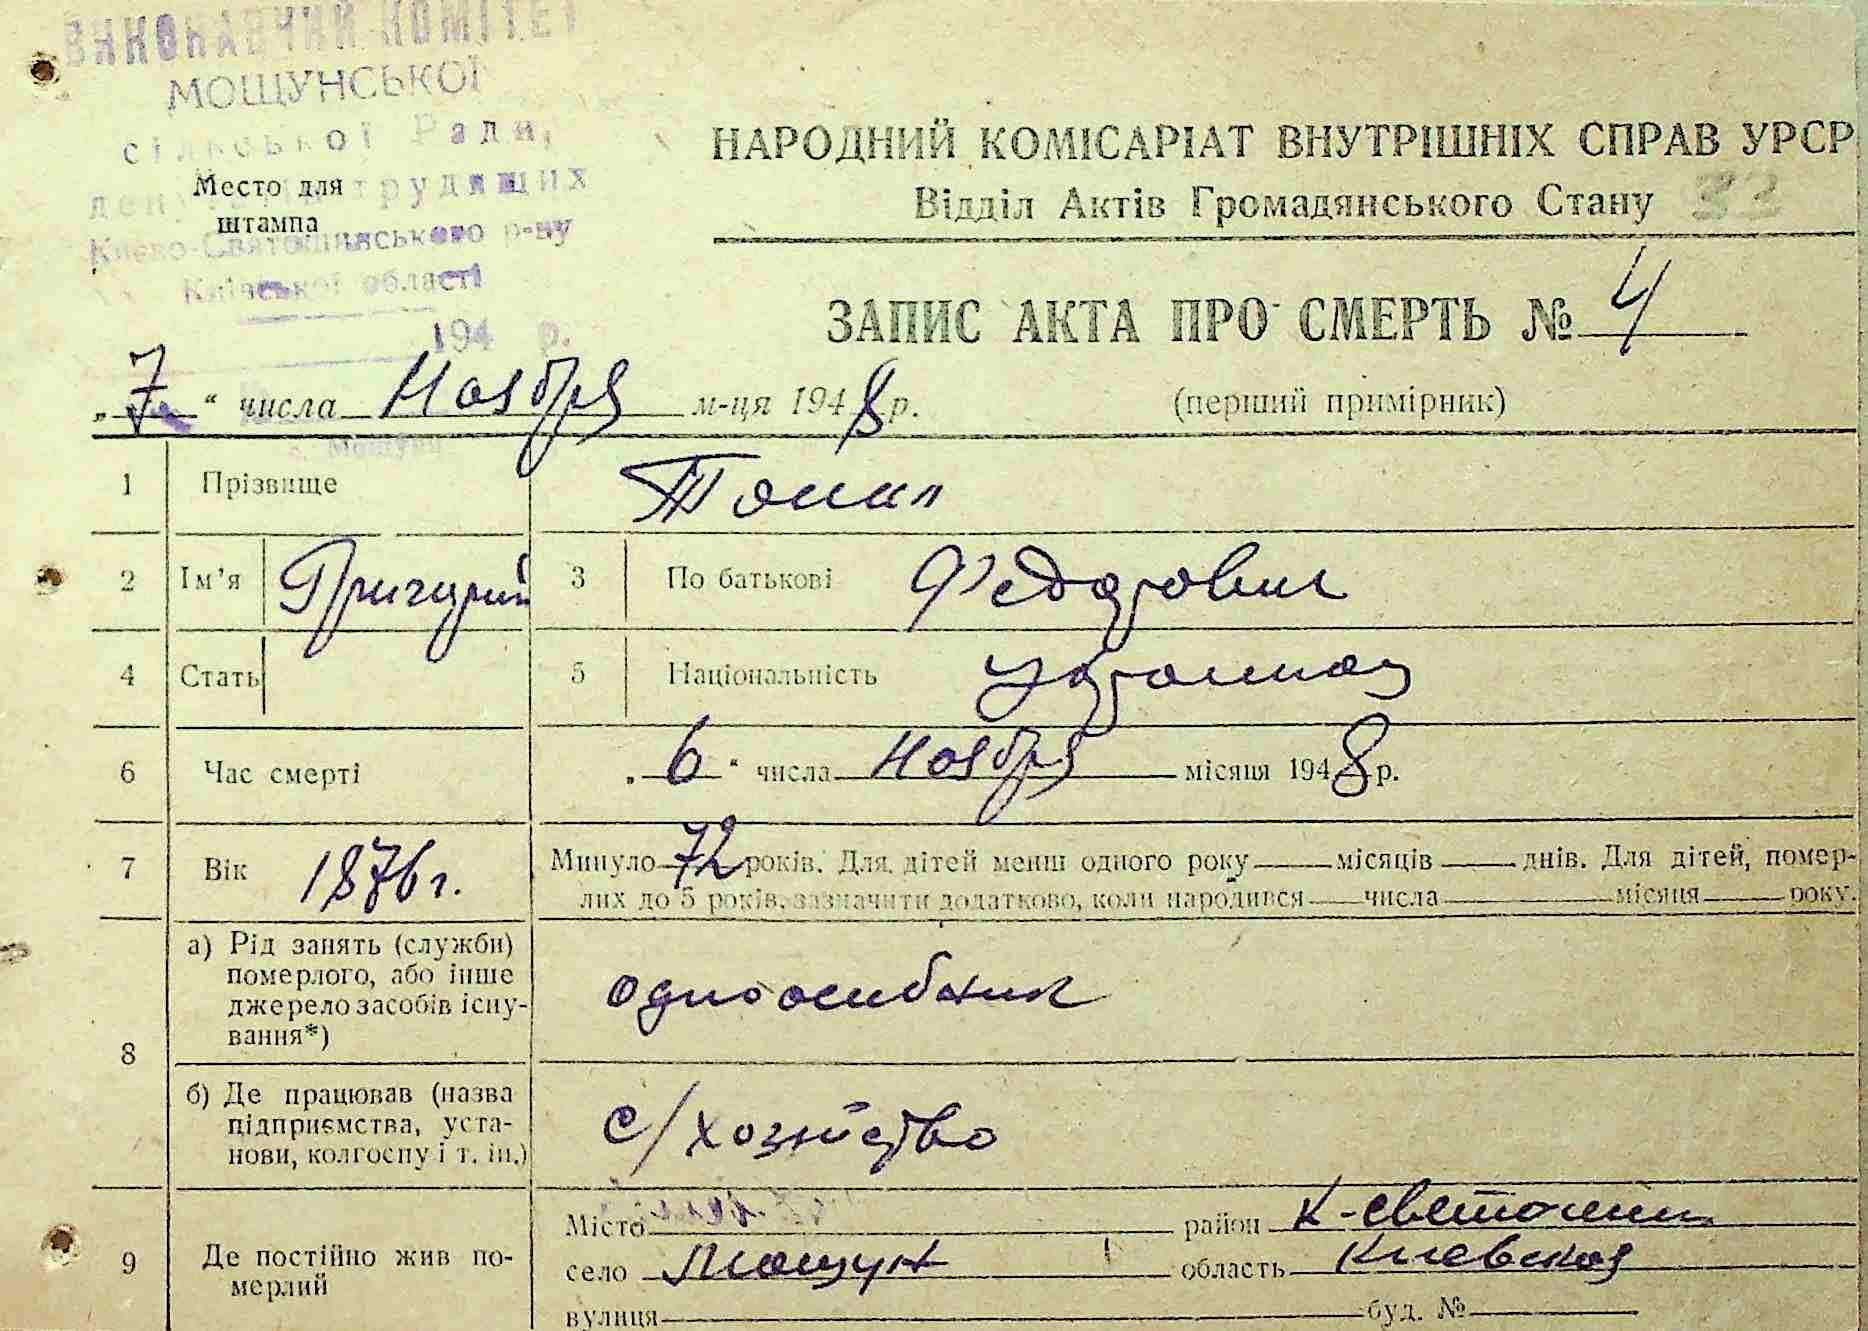 ВИКОНАВЧИЙ КОМІТЕТ
МОЩУНСЬКОЇ
сільської Ради,
депутатів трудящих
Києво-Святошинського р-ну
Київської області
194 р.
Место для
штампа
НАРОДНИЙ КОМІСАРІАТ ВНУТРІШНІХ СПРАВ УРСР
Відділ Актів Громадянського Стану 32
ЗАПИС АКТА ПРО СМЕРТЬ № 4
„7" числа Ноября м-ця 1948 р.
(перший примірник)
1 Прізвище
2 Ім’я Григорий 3 По батькові Федорович
4 Стать 5 Національність
6 Час смерті „6" числа Ноября місяця 1948 р.
7 Вік 1876 г. Минуло 72 років. Для дітей менш одного року місяців днів. Для дітей, помер-
лих до 5 років, зазначити додатково, коли народився числа місяця року.
8 а) Рід занять (служби)
померлого, або інше
джерело засобів існу-
вання*)
одноосибник
б) Де працював (назва
підприємства, уста-
нови, колгоспу і т. ін.)
с/хозяйство
9 Де постійно жив по-
мерлий
Місто район К-Светошин
село Мощун область Киевская
вулиця буд. №